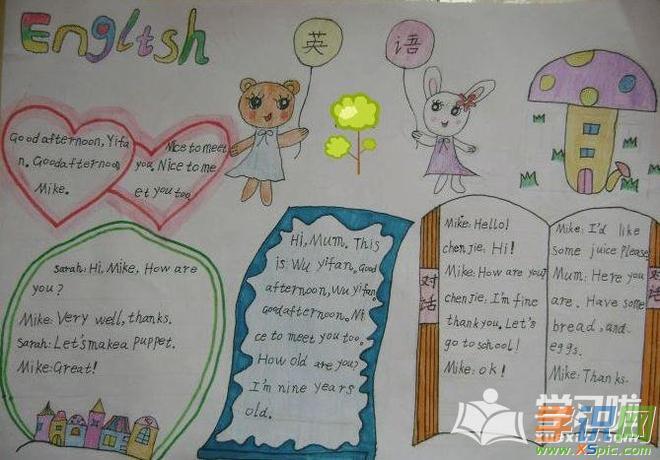 English
英
语
Good afternoon, Yifa
n. Good afternoon
Mike.
Nice to meet
you. Nice to me
et you too.
Sarah: Hi, Mike, How are
you?
Mike: Very well, thanks.
Sarah: Let's make a puppet.
Mike: Great!
Hi, Mum. This
is Wu Yifan. Good
afternoon, Wu Yifan.
Good afternoon. Ni
ce to meet you too.
How old are you?
I'm nine years
old.
对话
Mike: Hello!
chen jie: Hi!
Mike: How are you?
chen jie: I'm fine
thank you. Let's
go to school!
Mike: ok!
Mike: I'd like
some juice Please
Mum: Here you
are. Have some
bread, and
eggs.
Mike: Thanks.
对话
学习啦
学识网
www.xspic.com